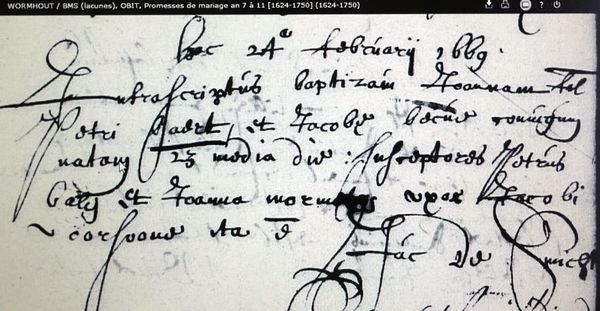 WORMHOUT / BMS (lacunes), OBIT, Promesses de mariage an 7 à 11 [1624-1750] (1624-1750)
hac 24ᵃ februarij 1669.
Infrascriptus baptizavi Joannam fil
Petri baert, et Jacobæ becue coniugum
natam 23 media die : susceptores Petrus
et Joanna uxor Jacobi
ita ē
Jac De